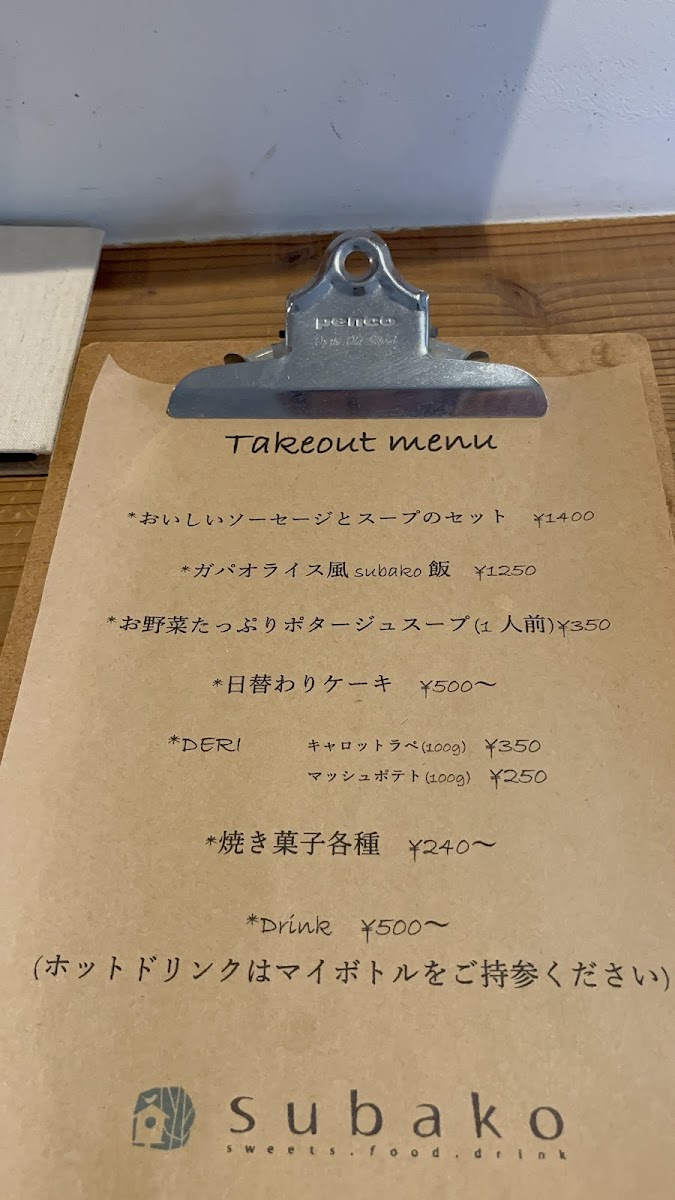 penco
Takeout menu
*おいしいソーセージとスープのセット ¥1400
*ガパオライス風subako飯 ¥1250
*お野菜たっぷりポタージュスープ(1人前)¥350
*日替わりケーキ ¥500〜
*DERI キャロットラペ(100g) ¥350
マッシュポテト(100g) ¥250
*焼き菓子各種 ¥240〜
*Drink ¥500〜
(ホットドリンクはマイボトルをご持参ください)
subako
sweets.food.drink